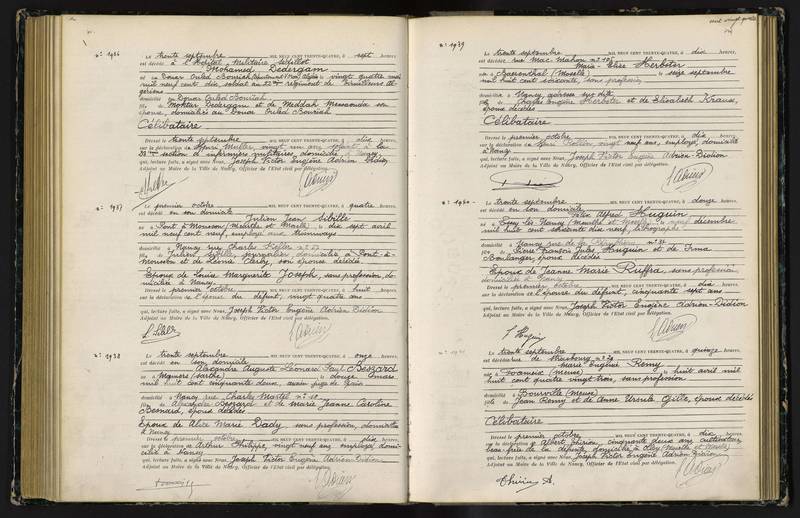 n° 1936
Le trente septembre MIL NEUF CENT TRENTE-QUATRE, à sept heures,
est décédé à l'Hôpital Militaire Sédillot
Mohamed Dedergam
né au Douar Ouled Bouriah vingt quatre mai
mil neuf cent dix, soldat au régiment de Tirailleurs Algériens
domicilié au Douar Ouled Bouriah
fils de Moktar Dedergam et de Meddah Messaouda son
épouse, domiciliés au Douar Ouled Bouriah
Célibataire
Dressé le premier octobre MIL NEUF CENT TRENTE-QUATRE, à dix heures,
sur la déclaration de Henri Muller, vingt un ans, soldat à la
section d'infirmiers militaires, domicilié à Nancy
qui, lecture faite, a signé avec Nous, Joseph Victor Eugène Adrian-Didion
Adjoint au Maire de la Ville de Nancy, Officier de l'Etat civil par délégation.
n° 1937
Le premier octobre MIL NEUF CENT TRENTE-QUATRE, à quatre heures,
est décédé en son domicile
Julien Jean Sibille
né à Pont à Mousson (Meurthe et Moselle) le dix sept avril
mil neuf cent neuf, employé aux tramways
domicilié à Nancy rue Charles Keller n° 57
fils de Julien Sibille, domicilié à Pont-à-
Mousson et de son épouse décédée
Epoux de Louise Marguerite Joseph, sans profession, do-
miciliée à Nancy
Dressé le premier octobre MIL NEUF CENT TRENTE-QUATRE, à huit heures,
sur la déclaration de l'épouse du défunt, vingt quatre ans
qui, lecture faite, a signé avec Nous, Joseph Victor Eugène Adrian-Didion
Adjoint au Maire de la Ville de Nancy, Officier de l'Etat civil par délégation.
n° 1938
Le trente septembre MIL NEUF CENT TRENTE-QUATRE, à onze heures,
est décédé en son domicile
Alexandre Auguste Léonard Paul Besnard
né à Mamers (Sarthe) le douze mars
mil huit cent cinquante deux, ancien juge de Paix
domicilié à Nancy rue Charles Martel n° 10
fils de Alexandre Besnard et de Marie Jeanne Caroline
Besnard, époux décédés
Epoux de Alice Marie Dady, sans profession, domiciliée
à Nancy
Dressé le premier octobre MIL NEUF CENT TRENTE-QUATRE, à dix heures,
sur la déclaration de Arthur Philippe, vingt neuf ans, employé, domi-
cilié à Nancy
qui, lecture faite, a signé avec Nous, Joseph Victor Eugène Adrian-Didion
Adjoint au Maire de la Ville de Nancy, Officier de l'Etat civil par délégation.
n° 1939
Le trente septembre MIL NEUF CENT TRENTE-QUATRE, à dix heures,
est décédée rue Mac Mahon n° 105
Marie Elise Herbster
née à Baerenthal (Moselle) le seize septembre
mil huit cent soixante, sans profession
domiciliée à Nancy, adresse sus dite
fille de Charles Eugène Herbster et de Elisabeth Kraus,
époux décédés
Célibataire
Dressé le premier octobre MIL NEUF CENT TRENTE-QUATRE, à dix heures,
sur la déclaration de Henri vingt neuf ans, employé, domicilié
à Nancy
qui, lecture faite, a signé avec Nous, Joseph Victor Eugène Adrian-Didion
Adjoint au Maire de la Ville de Nancy, Officier de l'Etat civil par délégation.
n° 1940
Le trente septembre MIL NEUF CENT TRENTE-QUATRE, à douze heures,
est décédé en son domicile
Jules Alfred Huguin
né à Essey les Nancy (Meurthe et Moselle) le neuf décembre
mil huit cent soixante dix neuf, lithographe
domicilié à Nancy rue de la
fils de Pierre François Jules Huguin et de Irma
Boulanger, époux décédés
Epoux de Jeanne Marie Ruffra, sans profession
domiciliée à Nancy
Dressé le premier octobre MIL NEUF CENT TRENTE-QUATRE, à dix heures,
sur la déclaration de l'épouse du défunt, cinquante sept ans
qui, lecture faite, a signé avec Nous, Joseph Victor Eugène Adrian-Didion
Adjoint au Maire de la Ville de Nancy, Officier de l'Etat civil par délégation.
J. Huguin
Le trente septembre MIL NEUF CENT TRENTE-QUATRE, à quinze heures,
est décédée rue de Strasbourg n° 74
Marie Eugénie Remy
née à (Meuse) le huit avril mil
huit cent quatre vingt trois, sans profession
domiciliée à Bourville (Meuse)
fille de Jean Remy et de Anne Ursule Gille, époux décédés
Célibataire
Dressé le premier octobre MIL NEUF CENT TRENTE-QUATRE, à dix heures,
sur la déclaration de Albert Thirion, cinquante deux ans, cultivateur
beau-frère de la défunte, domicilié à (Meurthe et Moselle)
qui, lecture faite, a signé avec Nous, Joseph Victor Eugène Adrian-Didion
Adjoint au Maire de la Ville de Nancy, Officier de l'Etat civil par délégation.
Thirion A.